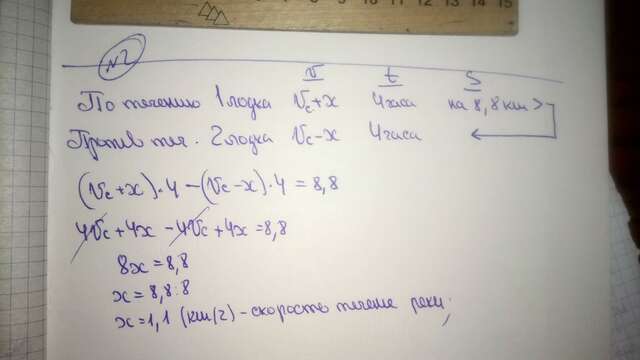 10 11 12 13 14 15
№2
v t S
По течению 1 лодка Vc+x 4 часа на 8,8 км >
Против теч. 2 лодка Vc-x 4 часа
(Vc+x)·4-(Vc-x)·4=8,8
4Vc+4x-4Vc+4x=8,8
8x=8,8
x=8,8:8
x=1,1 (км/г)-скорость течение реки;